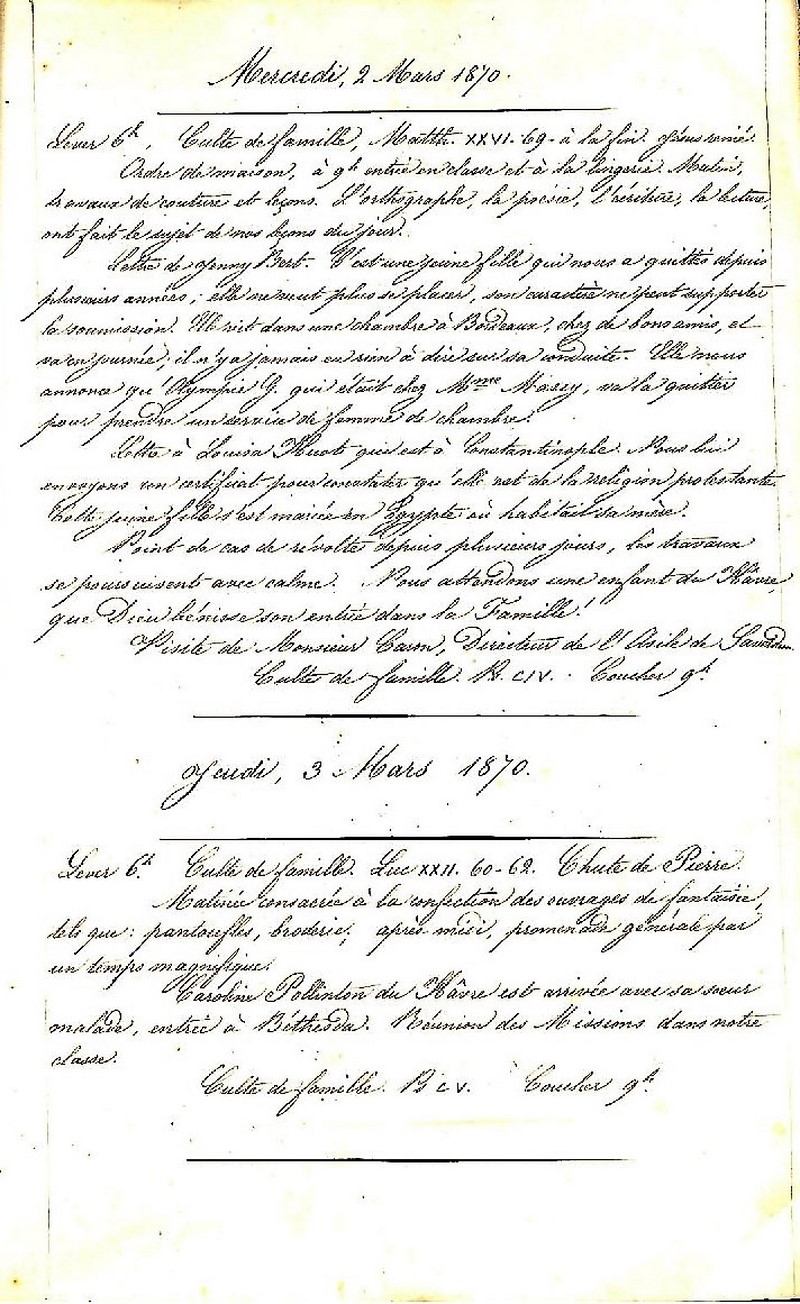 Mercredi, 2 Mars 1870.
Lever 6h. Culte de famille, Matth. XXVI. 69 - à la fin. Jésus renié.
Ordre de maison, à 9h entrée en classe et à la lingerie. Matin,
travaux de couture et leçons. L'orthographe, la poésie, l'écriture, la lecture,
ont fait le sujet de nos leçons du jour.
Lettre de Jenny Bert. C'est une jeune fille qui nous a quittés depuis
plusieurs années; elle ne veut plus se placer, son caractère ne peut supporter
la soumission. Elle vit dans une chambre à Bordeaux, chez de bons amis, et
va en journée; il n'y a jamais eu rien à dire sur sa conduite. Elle nous
annonce qu'Olympie G. qui était chez Mme Massy, va la quitter
pour prendre un service de femme de chambre.
Lettre à Louisa qui est à Constantinople. Nous lui
envoyons un certificat pour constater qu'elle est de la religion protestante.
Cette jeune fille s'est mariée en Egypte où habitait sa mère.
Point de cas de révolte depuis plusieurs jours, les travaux
se poursuivent avec calme. Nous attendons une enfant du Hâvre,
que Dieu bénisse son entrée dans la Famille!
Visite de Monsieur Caron, Directeur de l'Asile de
Culte de famille. P. CIV. Coucher 9h.
Jeudi, 3 Mars 1870.
Lever 6h. Culte de famille. Luc XXII. 60-62. Chute de Pierre.
Matinée consacrée à la confection des ouvrages de fantaisie,
tels que: pantoufles, broderie; après midi, promenade générale par
un temps magnifique.
Caroline Pollinton du Hâvre est arrivée avec sa soeur
malade, entrée à Béthesda. Réunion des Missions dans notre
classe.
Culte de famille. P. CV. Coucher 9h.